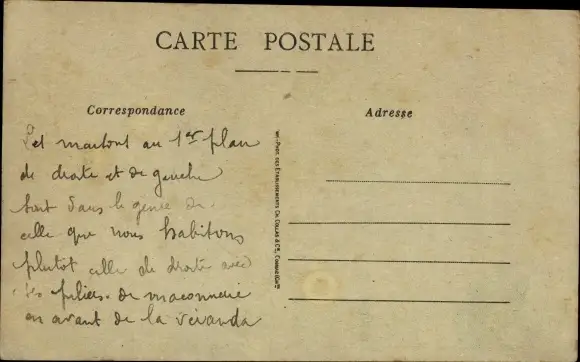 CARTE POSTALE
Correspondance
Adresse
Les maisons au 1er plan
de droite et de gauche
sont dans le genre de
celle que nous habitons
plutot celle de droite avec
des piliers de maconnerie
en avant de la veranda
PAR LES ETABLISSEMENTS CH. COLLAS & Cie, COGNAC